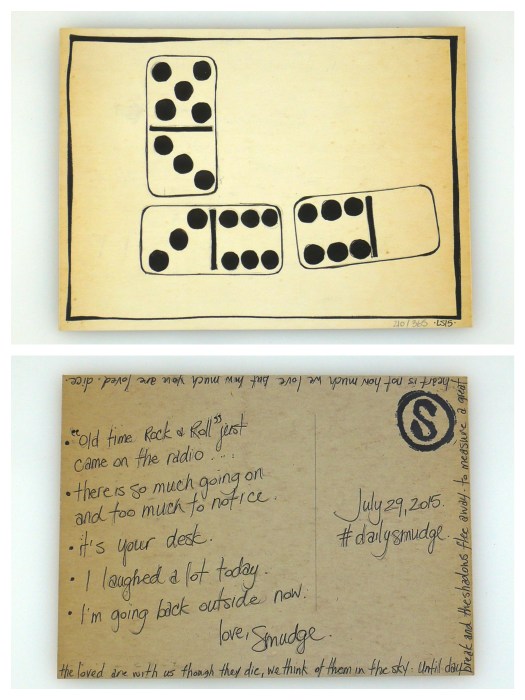 210/365 ·LS15·
• "Old time Rock & Roll" just
came on the radio....
• there is so much going on
and too much to notice.
• it's your desk.
• I laughed a lot today.
• I'm going back outside now.
love, Smudge.
S
July 29, 2015.
#dailysmudge.
the loved are with us though they die, we think of them in the sky. Until day
break and the shadows flee away. to measure a great
heart is not how much we love but how much you are loved. dice.